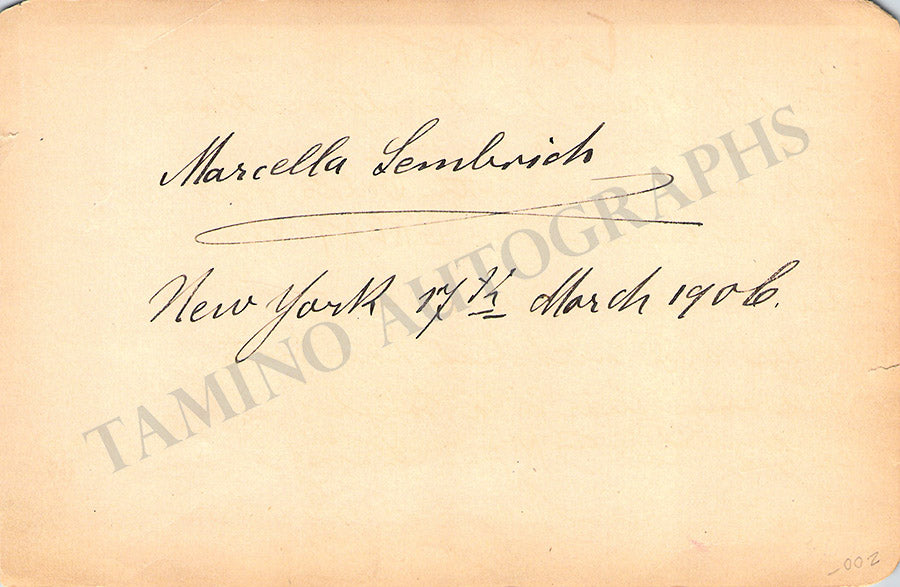 Marcella Sembrich
New York 17th March 1906.
TAMINO AUTOGRAPHS
_002